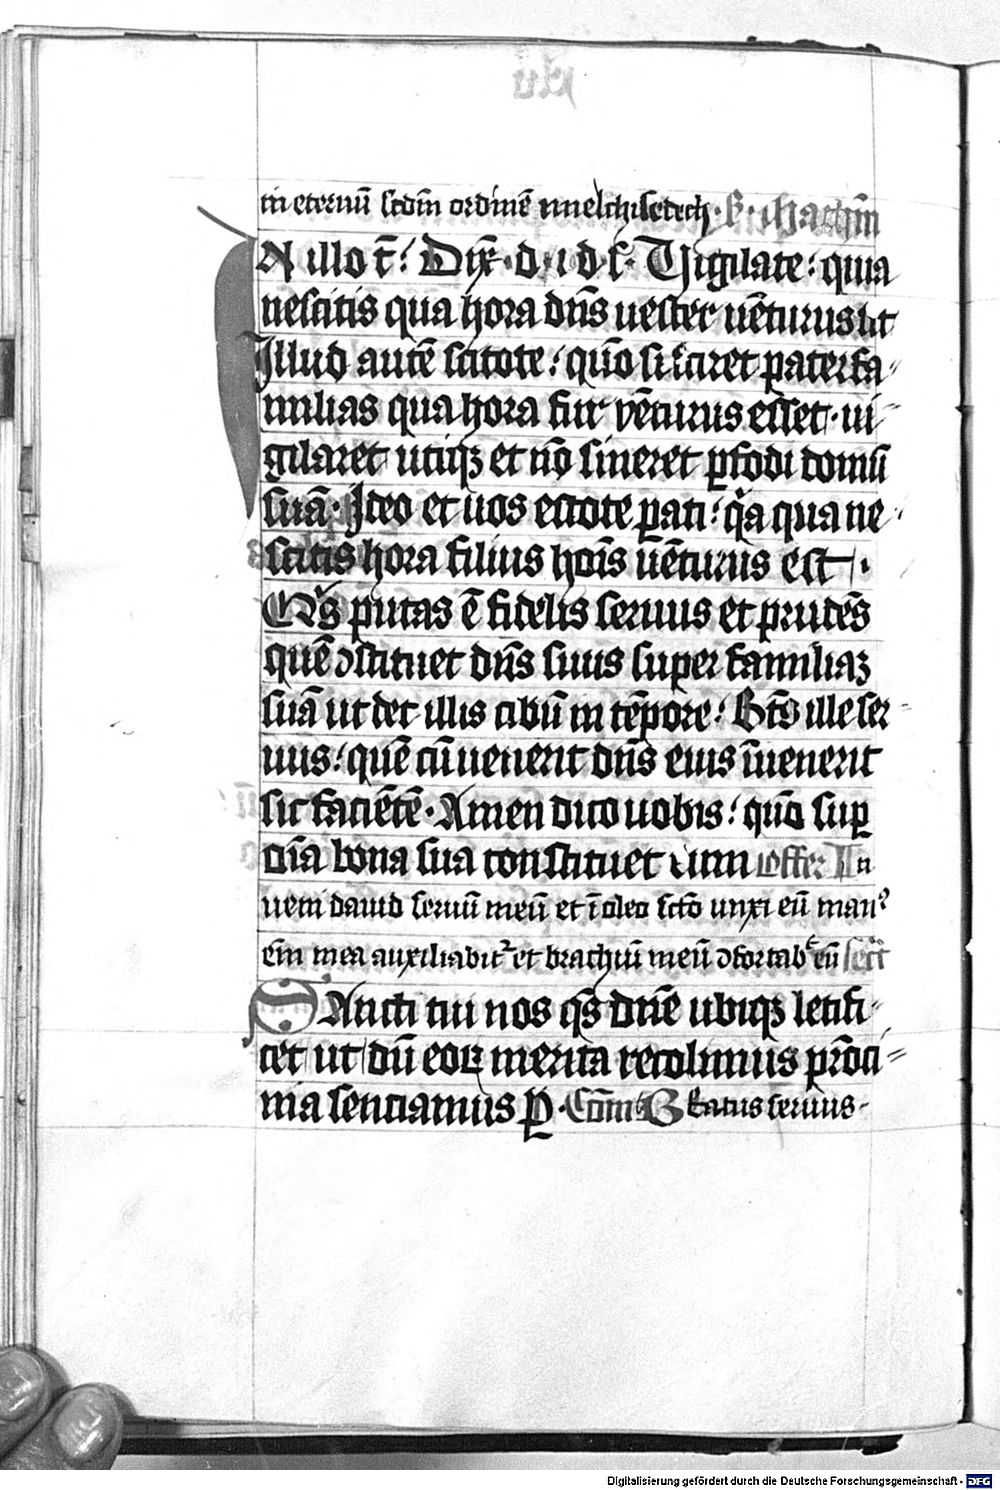 in eternū scdm̄ ordinē melchisedech · S · Mathm̄
IN illo t̄ : Dix̄ · d · i · d · s · Vigilate : quia
nescitis qua hora dn̄s uester uēturus sit
Illud autē scitote : qūo si sciret paterfa⸗
milias qua hora fur vēturus esset · ui⸗
gilaret utiqꝫ et nō sineret ꝑfodi domū
suā · Ideo et uos estote ꝑati : qͣ qua ne⸗
scitis hora filius hoīs uēturus est ·
Qͥs putas ē fidelis seruus et prudēs
quē ↄstituet dn̄s suus super familiaꝫ
suā ut det illis cibū in tēpore : Bt̄s ille ser⸗
uus : quē cū uenerit dn̄s eius īuenerit
sic faciētē · Amen dico uobis : qūo suꝑ
oīa bona sua constituet eum offer In
ueni dauid seruū meū et ī oleo scō unxi eū manꝰ
em̄ mea auxiliabitᷣ et brachiū meū ↄfortabᵗ eū secͬ
SAncti tui nos qs̄ dn̄e ubiqꝫ letifi⸗
cēt ut dū eoꝝ merita recolimus pr̄oci⸗
nia senciamus ꝑ · Com̄ Beatus seruus ·
Digitalisierung gefördert durch die Deutsche Forschungsgemeinschaft - DFG